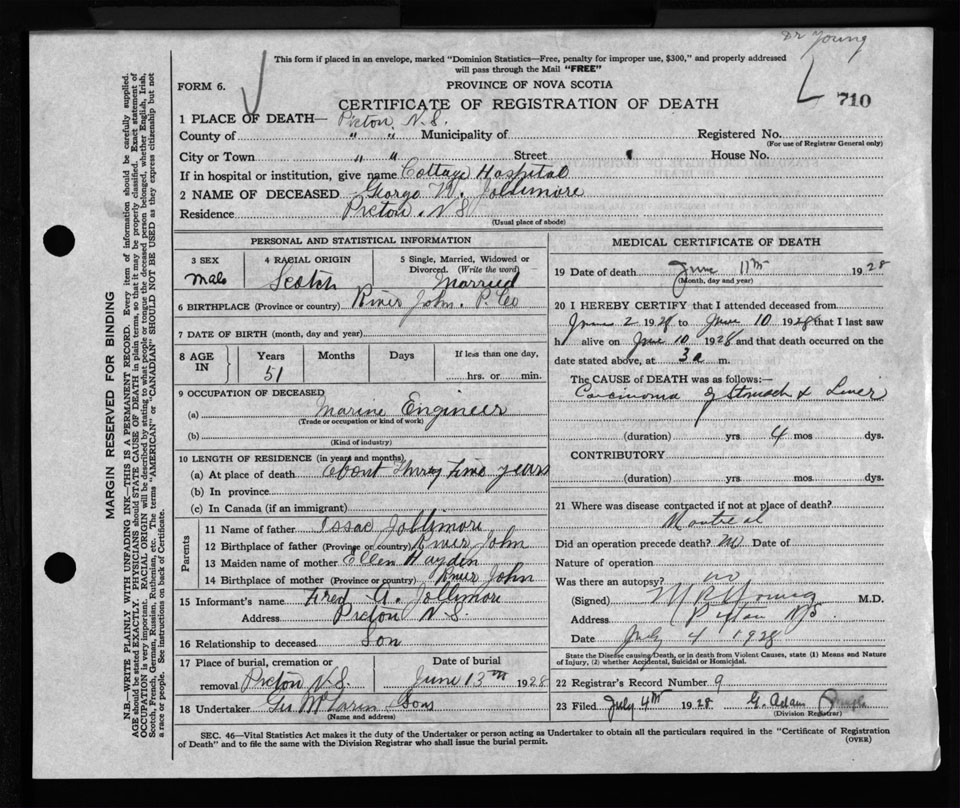 Dr Young
This form if placed in an envelope, marked "Dominion Statistics—Free, penalty for improper use, $300," and properly addressed
will pass through the Mail "FREE"
FORM 6.
PROVINCE OF NOVA SCOTIA
710
CERTIFICATE OF REGISTRATION OF DEATH
1 PLACE OF DEATH— Pictou, N.S.
County of " " Municipality of Registered No.
(For use of Registrar General only)
City or Town " " Street House No.
If in hospital or institution, give name Cottage Hospital
2 NAME OF DECEASED George W. Jollimore
Residence Pictou. N S
(Usual place of abode)
PERSONAL AND STATISTICAL INFORMATION
3 SEX
male
4 RACIAL ORIGIN
Scotch
5 Single, Married, Widowed or
Divorced. (Write the word)
Married
6 BIRTHPLACE (Province or country) River John. P. Co
7 DATE OF BIRTH (month, day and year)
8 AGE
IN
Years
51
Months
Days
If less than one day,
hrs. or min.
9 OCCUPATION OF DECEASED
(a) Marine Engineer
(Trade or occupation or kind of work)
(b)
(Kind of industry)
10 LENGTH OF RESIDENCE (in years and months)
(a) At place of death years
(b) In province
(c) In Canada (if an immigrant)
Parents
11 Name of father Issac Jollimore
12 Birthplace of father (Province or country) River John
13 Maiden name of mother Ellen Hayden
14 Birthplace of mother (Province or country) River John
15 Informant's name Fred A. Jollimore
Address Pictou N S.
16 Relationship to deceased Son
17 Place of burial, cremation or
removal Pictou N.S.
Date of burial
June 13th 1928
18 Undertaker Sons
(Name and address)
MEDICAL CERTIFICATE OF DEATH
19 Date of death June 11th 1928
(Month, day and year)
20 I HEREBY CERTIFY that I attended deceased from
June 2 1928 to June 10 1928 that I last saw
h alive on June 10 1928 and that death occurred on the
date stated above, at 3 a m.
The CAUSE of DEATH was as follows:—
Carcinoma of Stomach & Liver
(duration) yrs 4 mos dys.
CONTRIBUTORY
(duration) yrs. mos. dys.
21 Where was disease contracted if not at place of death?
Montreal
Did an operation precede death? Date of
Nature of operation
Was there an autopsy? no
(Signed) Young M.D.
Address Pictou NS
Date July 4 1928
State the Disease causing Death, or in death from Violent Causes, state (1) Means and Nature
of Injury, (2) whether Accidental, Suicidal or Homicidal.
22 Registrar's Record Number 9
23 Filed July 4th 1928 G. Adam
(Division Registrar)
SEC. 46—Vital Statistics Act makes it the duty of the Undertaker or person acting as Undertaker to obtain all the particulars required in the "Certificate of Registration
of Death" and to file the same with the Division Registrar who shall issue the burial permit.
(OVER)
MARGIN RESERVED FOR BINDING
N.B.—WRITE PLAINLY WITH UNFADING INK—THIS IS A PERMANENT RECORD. Every item of information should be carefully supplied.
AGE should be stated EXACTLY. PHYSICIANS should STATE CAUSE OF DEATH in plain terms, so that it may be properly classified. Exact statement of
OCCUPATION is very important. RACIAL ORIGIN will be described by stating to what people or tongue the deceased person belonged, whether English, Irish,
Scotch, French, German, Russian, Ruthenian, etc. The terms "AMERICAN" or "CANADIAN" SHOULD NOT BE USED as they express citizenship but not
a race or people. See instructions on back of Certificate.